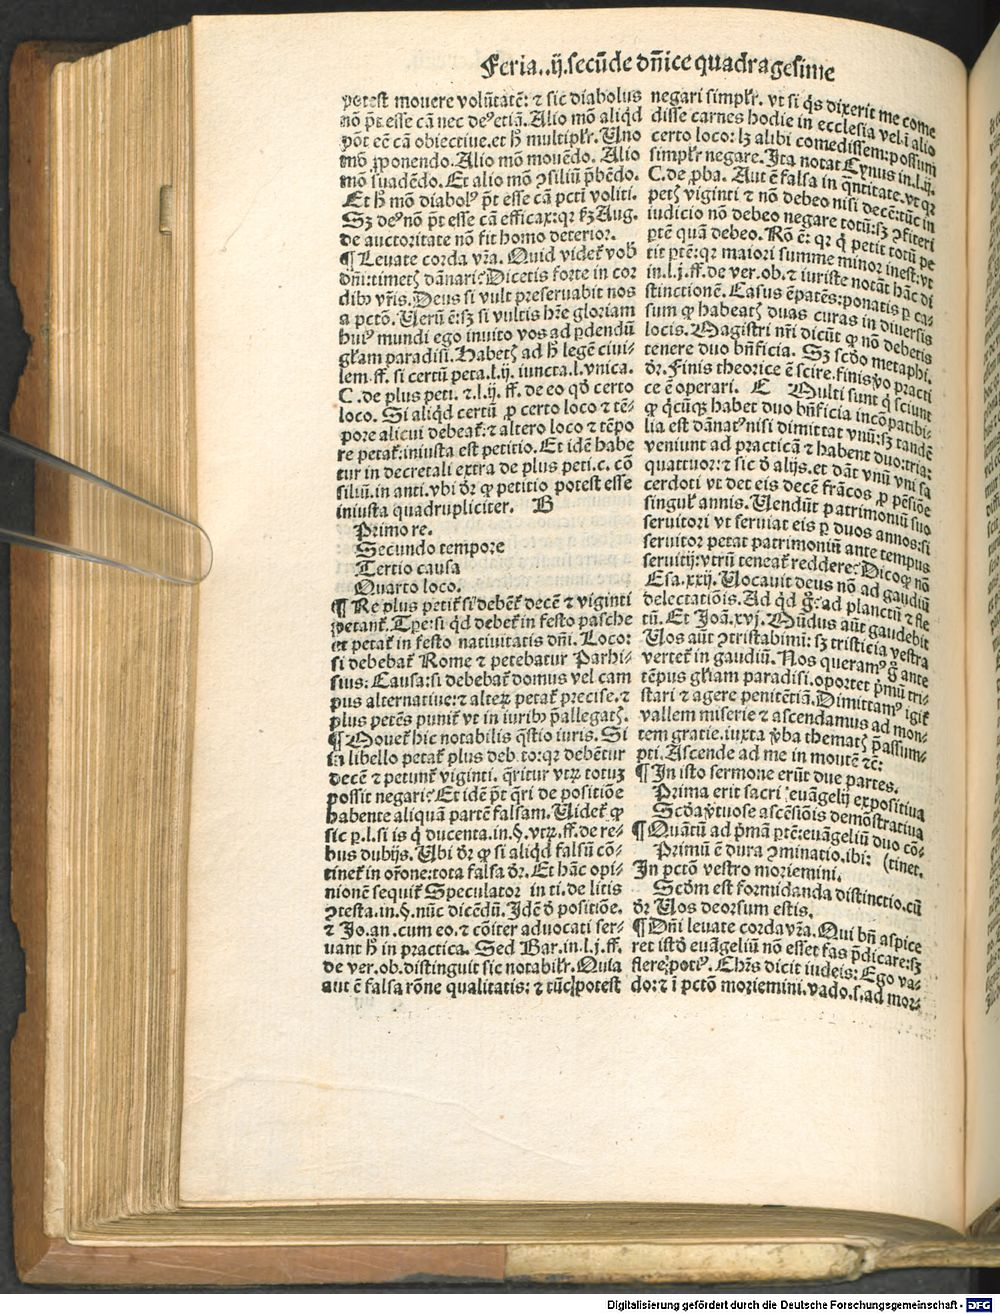 Feria..ij.secūde dn̄ice quadragesime
potest mouere volūtatē: ⁊ sic diabolus
nō p̄t esse cā nec deꝰetiā. Alio mō aliqd
pōt eē cā obiectiue.et h̄ multiplr̄. Uno
mō ꝓponendo. Alio mō mouēdo. Alio
mō suadēdo. Et alio mō ꝯsiliū p̄bēdo.
Et h̄ mō diabolꝰ p̄t esse cā pcti voliti.
Sꝫ deꝰ nō p̄t esse cā efficax: qꝛ ẜꝫ Aug.
de auctoritate nō fit homo deterior.
¶ Leuate corda vr̄a. Quid videt̄ vob̄
dn̄i: timetꝭ dānari? Dicetis forte in cor
dibꝰ vr̄is. Deus si vult preseruabit nos
a pctō. Uerū ē: sꝫ si vultis hr̄e gloriam
huiꝰ mundi ego inuito vos ad ꝑdendū
gl̄am paradisi. Habetꝭ ad h̄ legē ciui-
lem.ff. si certū peta.l.ij. iuncta.l.vnica.
C. de plus peti. ⁊.l.ij. ff. de eo qd̄ certo
loco. Si aliqd certū ꝓ certo loco ⁊ tē-
pore alicui debeat̄: ⁊ altero loco ⁊ tēpo
re petat̄: iniusta est petitio. Et idē habe
tur in decretali extra de plus peti.c. cō
siliū.in anti. vbi dr̄ ꝙ petitio potest esse
iniusta quadrupliciter. B
Primo re.
Secundo tempore
Tertio causa
Quarto loco.
¶ Re plus petit̄ si debēt̄ decē ⁊ viginti
petant̄. Tpe: si qd debet̄ in festo pasche
et petat̄ in festo natiuitatis dn̄i. Loco:
si debebat̄ Rome ⁊ petebatur Parhi-
sius: Causa: si debebat̄ domus vel cam
pus alternatiue: ⁊ alterꝝ petat̄ precise. ⁊
plus petēs punit̄ vt in iuribꝰ p̄allegatꝭ.
¶ Mouet̄ hic notabilis q̄stio iuris. Si
in libello petat̄ plus debito: qꝛ debētur
decē ⁊ petunt̄ viginti. q̄ritur vtꝝ totuꝫ
possit negari? Et idē p̄t q̄ri de positiōe
habente aliquā partē falsam. Uidet̄ ꝙ
sic ꝑ.l. si is q̇ ducenta.in.§.vtꝝ.ff. de re-
bus dubijs. Ubi dr̄ ꝙ si aliqd falsū cō-
tinet̄ in or̄one: tota falsa dr̄. Et hāc opi-
nionē sequit̄ Speculator in ti. de litis
ꝯtesta.in.§.nūc dicēdū. Idē d̄ positiōe.
⁊ Jo.an. cum eo. ⁊ cōiter aduocati ser-
uant h̄ in practica. Sed Bar.in.l.j.ff.
de ver.ob. distinguit sic notabilr̄. Quia
aut ē falsa rōne qualitatis: ⁊ tūc potest
negari simplr̄. vt si q̇s dixerit me come
disse carnes hodie in ecclesia vel ī alio
certo loco: lꝫ alibi comedissem: possum
simplr̄ negare. Ita notat Cynus in.l.ij.
C. de ꝓba. Aut ē falsa in q̄ntitate. vt qꝛ
petꝭ viginti ⁊ nō debeo nisi decē: tūc in
iudicio nō debeo negare totū: sꝫ ꝯfiteri
ꝑtē quā debeo. Rō ē: qꝛ q̇ petit totū pe
tit ꝑtē: qꝛ maiori summe minor inest: vt
in.l.j.ff. de ver.ob. ⁊ iuriste notāt hāc di
stinctionē. Casus ē patēs: ponatis ꝑ ca-
sum ꝙ habeatꝭ duas curas in diuersis
locis. Magistri nr̄i dicūt ꝙ nō debetis
tenere duo bn̄ficia. Sꝫ scd̄o metaphi.
dr̄. Finis theorice ē scire. finis v̊o practi
ce ē operari. C Multi sunt q̇ sciunt
ꝙ q̇cūqꝫ habet duo bn̄ficia incōpatibi-
lia est dānatꝰ nisi dimittat vnū: sꝫ tandē
veniunt ad practicā ⁊ habent duo: tria:
quattuor: ⁊ sic d̄ alijs. et dāt vnū vni sa
cerdoti vt det eis decē frācos ꝓ pēsiōe
singul̄ annis. Uendūt patrimoniū suo
seruitori vt seruiat eis ꝑ duos annos: si
seruitor petat patrimoniū ante tempus
seruitij: vtrū teneat̄ reddere? Dico ꝙ nō
Esa.xxij. Uocauit deus nō ad gaudiū
delectatiōis. Ad qd g̊? ad planctū ⁊ fle
tū. Et Joā.xvj. Mūdus aūt gaudebit
Uos aūt ꝯtristabimī: sꝫ tristicia vestra
vertet̄ in gaudiū. Nos queramꝰ g̊ ante
tēpus gl̄iam paradisi. oportet p̄mū tri-
stari ⁊ agere penitētiā. Dimittamꝰ igit̄
vallem miserie ⁊ ascendamus ad mon-
tem gratie. iuxta v̊ba thematꝭ p̄assum-
pti. Ascende ad me in montē ⁊c̄.
¶ In isto sermone erūt due partes.
Prima erit sacri euāgelij expositiua
Scd̄a v̊tuose ascēsiōis demōstratiua
¶ Quātū ad p̄mā ꝑtē: euāgeliū duo cō-
Primū ē dura ꝯminatio. ibi: (tinet.
In pctō vestro moriemini.
Scd̄m est formidanda distinctio. cū
dr̄ Uos deorsum estis.
¶ Dn̄i leuate corda vr̄a. Qui bn̄ aspice
ret istd̄ euāgeliū nō esset fas p̄dicare: sꝫ
flere potiꝰ. Chr̄s dicit iudeis: Ego va-
do: ⁊ ī pctō moriemini. vado.s. ad mor-
Digitalisierung gefördert durch die Deutsche Forschungsgemeinschaft - DFG